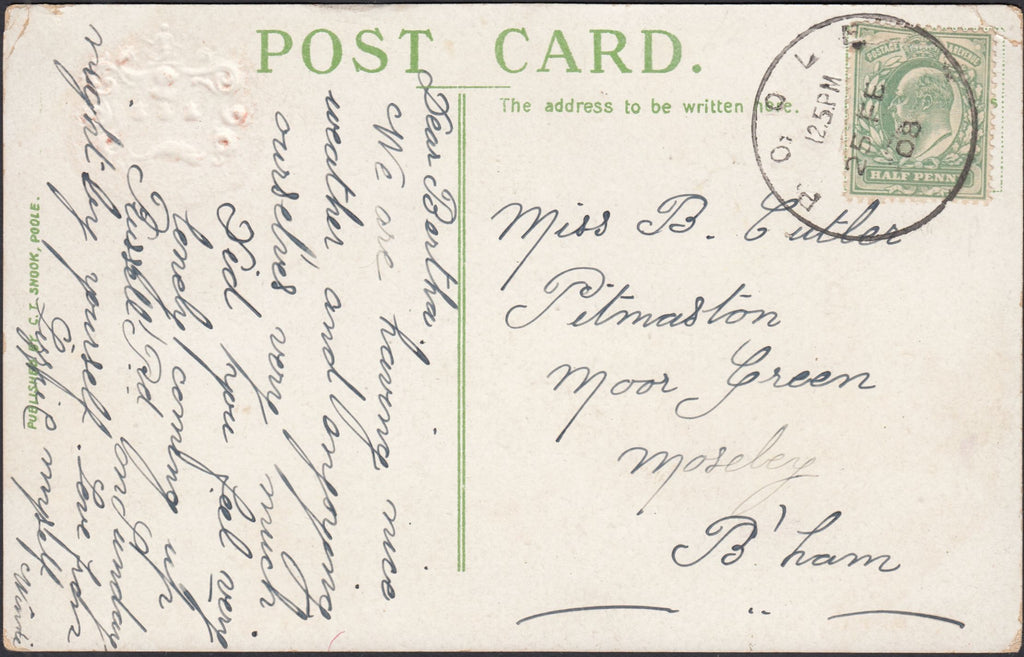 POST CARD.
The address to be written here.
POSTAGE REVENUE
HALF PENNY
POOLE
12.5.PM
25 FE
08
Miss B. Cutler
Pitmaston
Moor Green
Moseley
B'ham
Dear Bertha.
We are having nice
weather and enjoying
ourselves very much
Did you feel very
lonely, coming up
Russell Rd on Sunday
night by yourself. Love from
myself
PUBLISHED BY C. T. SNOOK, POOLE.